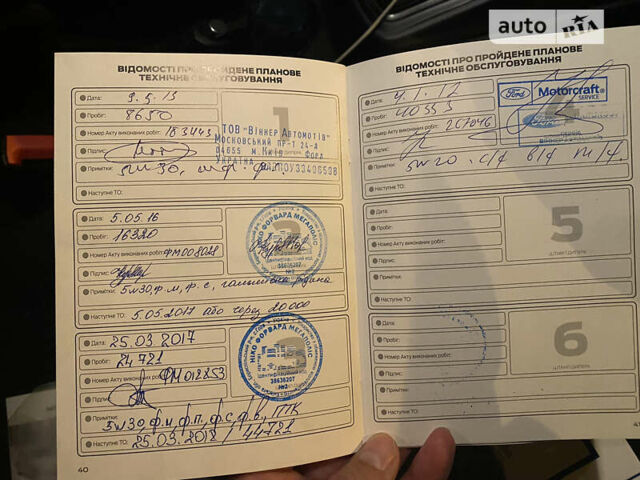 auto RIA
ВІДОМОСТІ ПРО ПРОЙДЕНЕ ПЛАНОВЕ
ТЕХНІЧНЕ ОБСЛУГОВУВАННЯ
Дата: 9.5.15
Пробіг: 8650
Номер Акту виконаних робіт: 183443
Підпис:
Примітки: 5W30,
Наступне ТО:
1
ТОВ "Віннер Автомотів"
Московський пр-т 24-А
04655 м.Київ Форд
Україна
Дата: 5.05.16
Пробіг: 16320
Номер Акту виконаних робіт: ФМ008028
Підпис:
Примітки: 5w30, ф.м, ф.с, гальмівна рідина
Наступне ТО: 5.05.2017 або через 20000
2
НІКО ФОРВАРД МЕГАПОЛІС
ідентифікаційний код
38638207
№2
Дата: 25.03.2017
Пробіг: 24721
Номер Акту виконаних робіт: ФМ012853
Підпис:
Примітки: 5w30, ф.м, ф.п, ф.с, ф.в, ПТК
Наступне ТО: 25.03.2018 / 44721
3
НІКО ФОРВАРД МЕГАПОЛІС
ідентифікаційний код
38638207
№2
40
ВІДОМОСТІ ПРО ПРОЙДЕНЕ ПЛАНОВЕ
ТЕХНІЧНЕ ОБСЛУГОВУВАННЯ
Дата:
Пробіг: 40553
Номер Акту виконаних робіт: 267046
Підпис:
Примітки: 5w20 с/ф в/ф п/ф.
Наступне ТО:
Ford Motorcraft
SERVICE
Дата:
Пробіг:
Номер Акту виконаних робіт:
Підпис:
Примітки:
Наступне ТО:
5
ШТАМП ДИЛЕРА
Дата:
Пробіг:
Номер Акту виконаних робіт:
Підпис:
Примітки:
Наступне ТО:
6
ШТАМП ДИЛЕРА